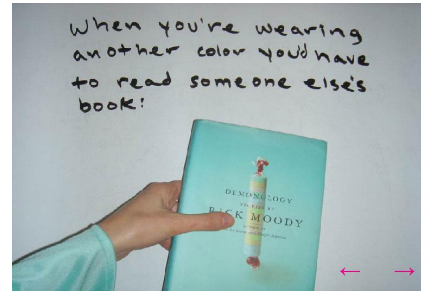 When you're wearing
another color you'd have
to read someone else's
book!
DEMONOLOGY
RICK MOODY
← →